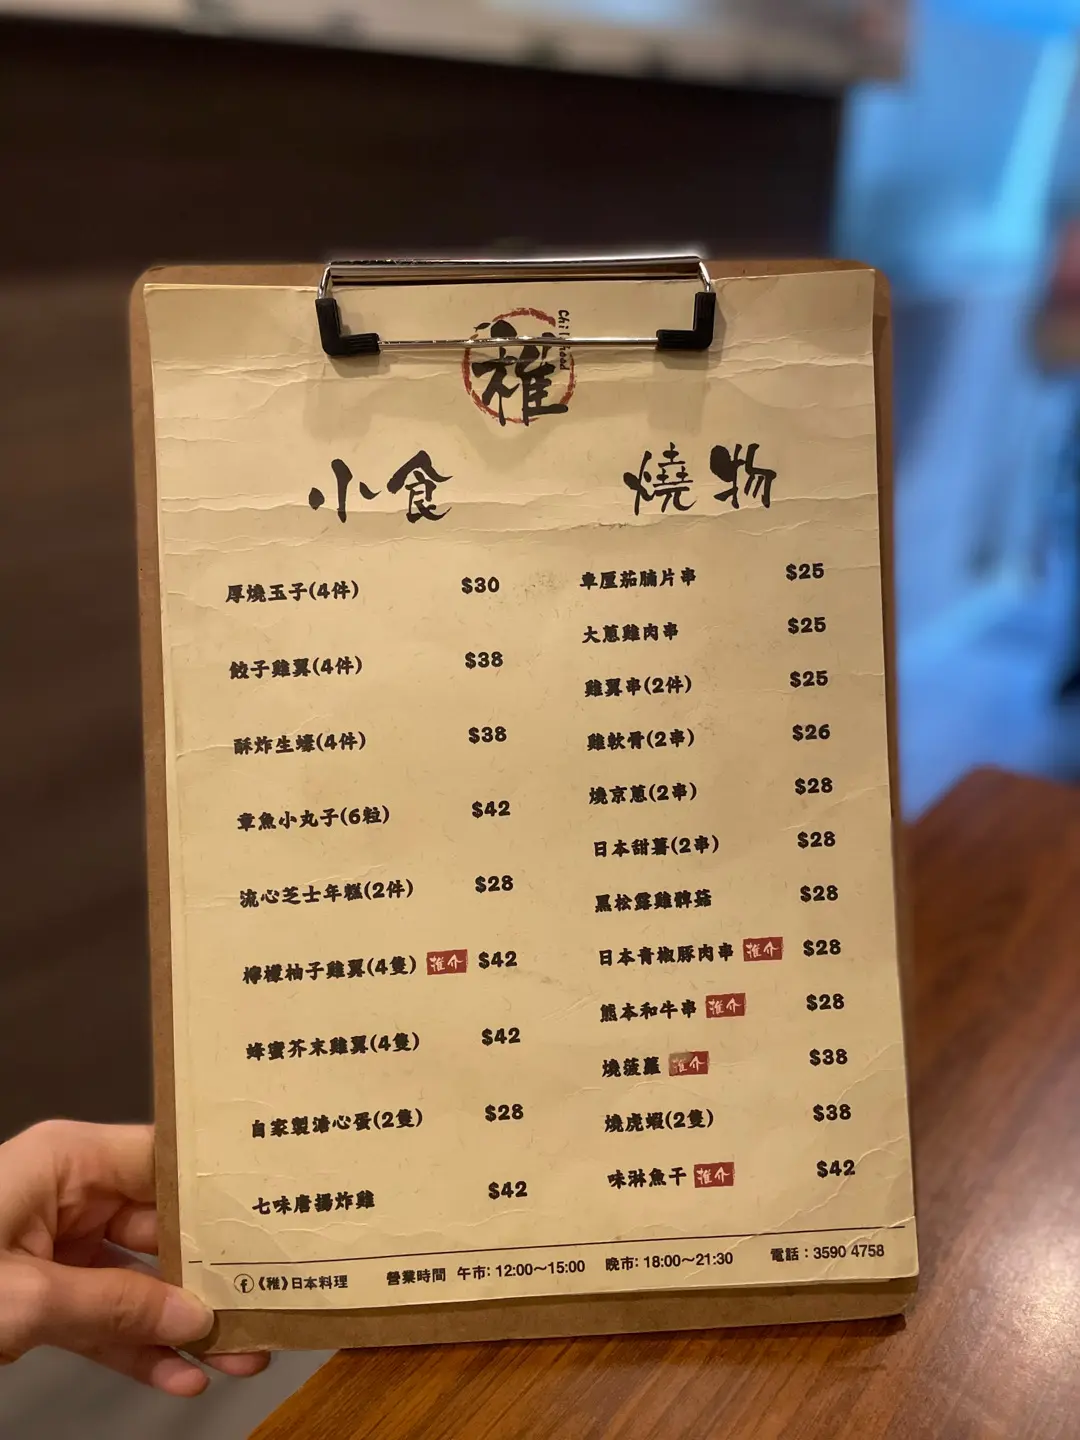 稚
小食
厚燒玉子(4件) $30
餃子雞翼(4件) $38
酥炸生蠔(4件) $38
章魚小丸子(6粒) $42
流心芝士年糕(2件) $28
檸檬柚子雞翼(4隻) 推介 $42
蜂蜜芥末雞翼(4隻) $42
自家製溏心蛋(2隻) $28
七味唐揚炸雞 $42
燒物
車厘茄腩片串 $25
大蔥雞肉串 $25
雞翼串(2件) $25
雞軟骨(2串) $26
燒京蔥(2串) $28
日本甜薯(2串) $28
黑松露雞髀菇 $28
日本青椒豚肉串 推介 $28
熊本和牛串 推介 $28
燒菠蘿 推介 $38
燒虎蝦(2隻) $38
味淋魚干 推介 $42
《稚》日本料理 營業時間 午市: 12:00～15:00 晚市: 18:00～21:30 電話：3590 4758